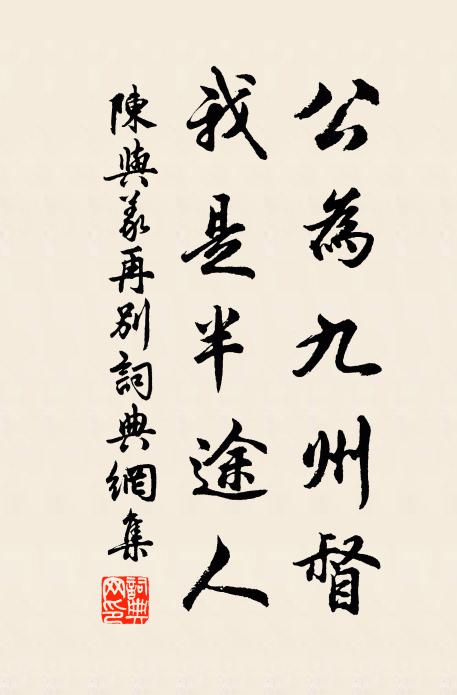 公為九州督
我是半途人
陳與義再別詞典網集
詞典網印